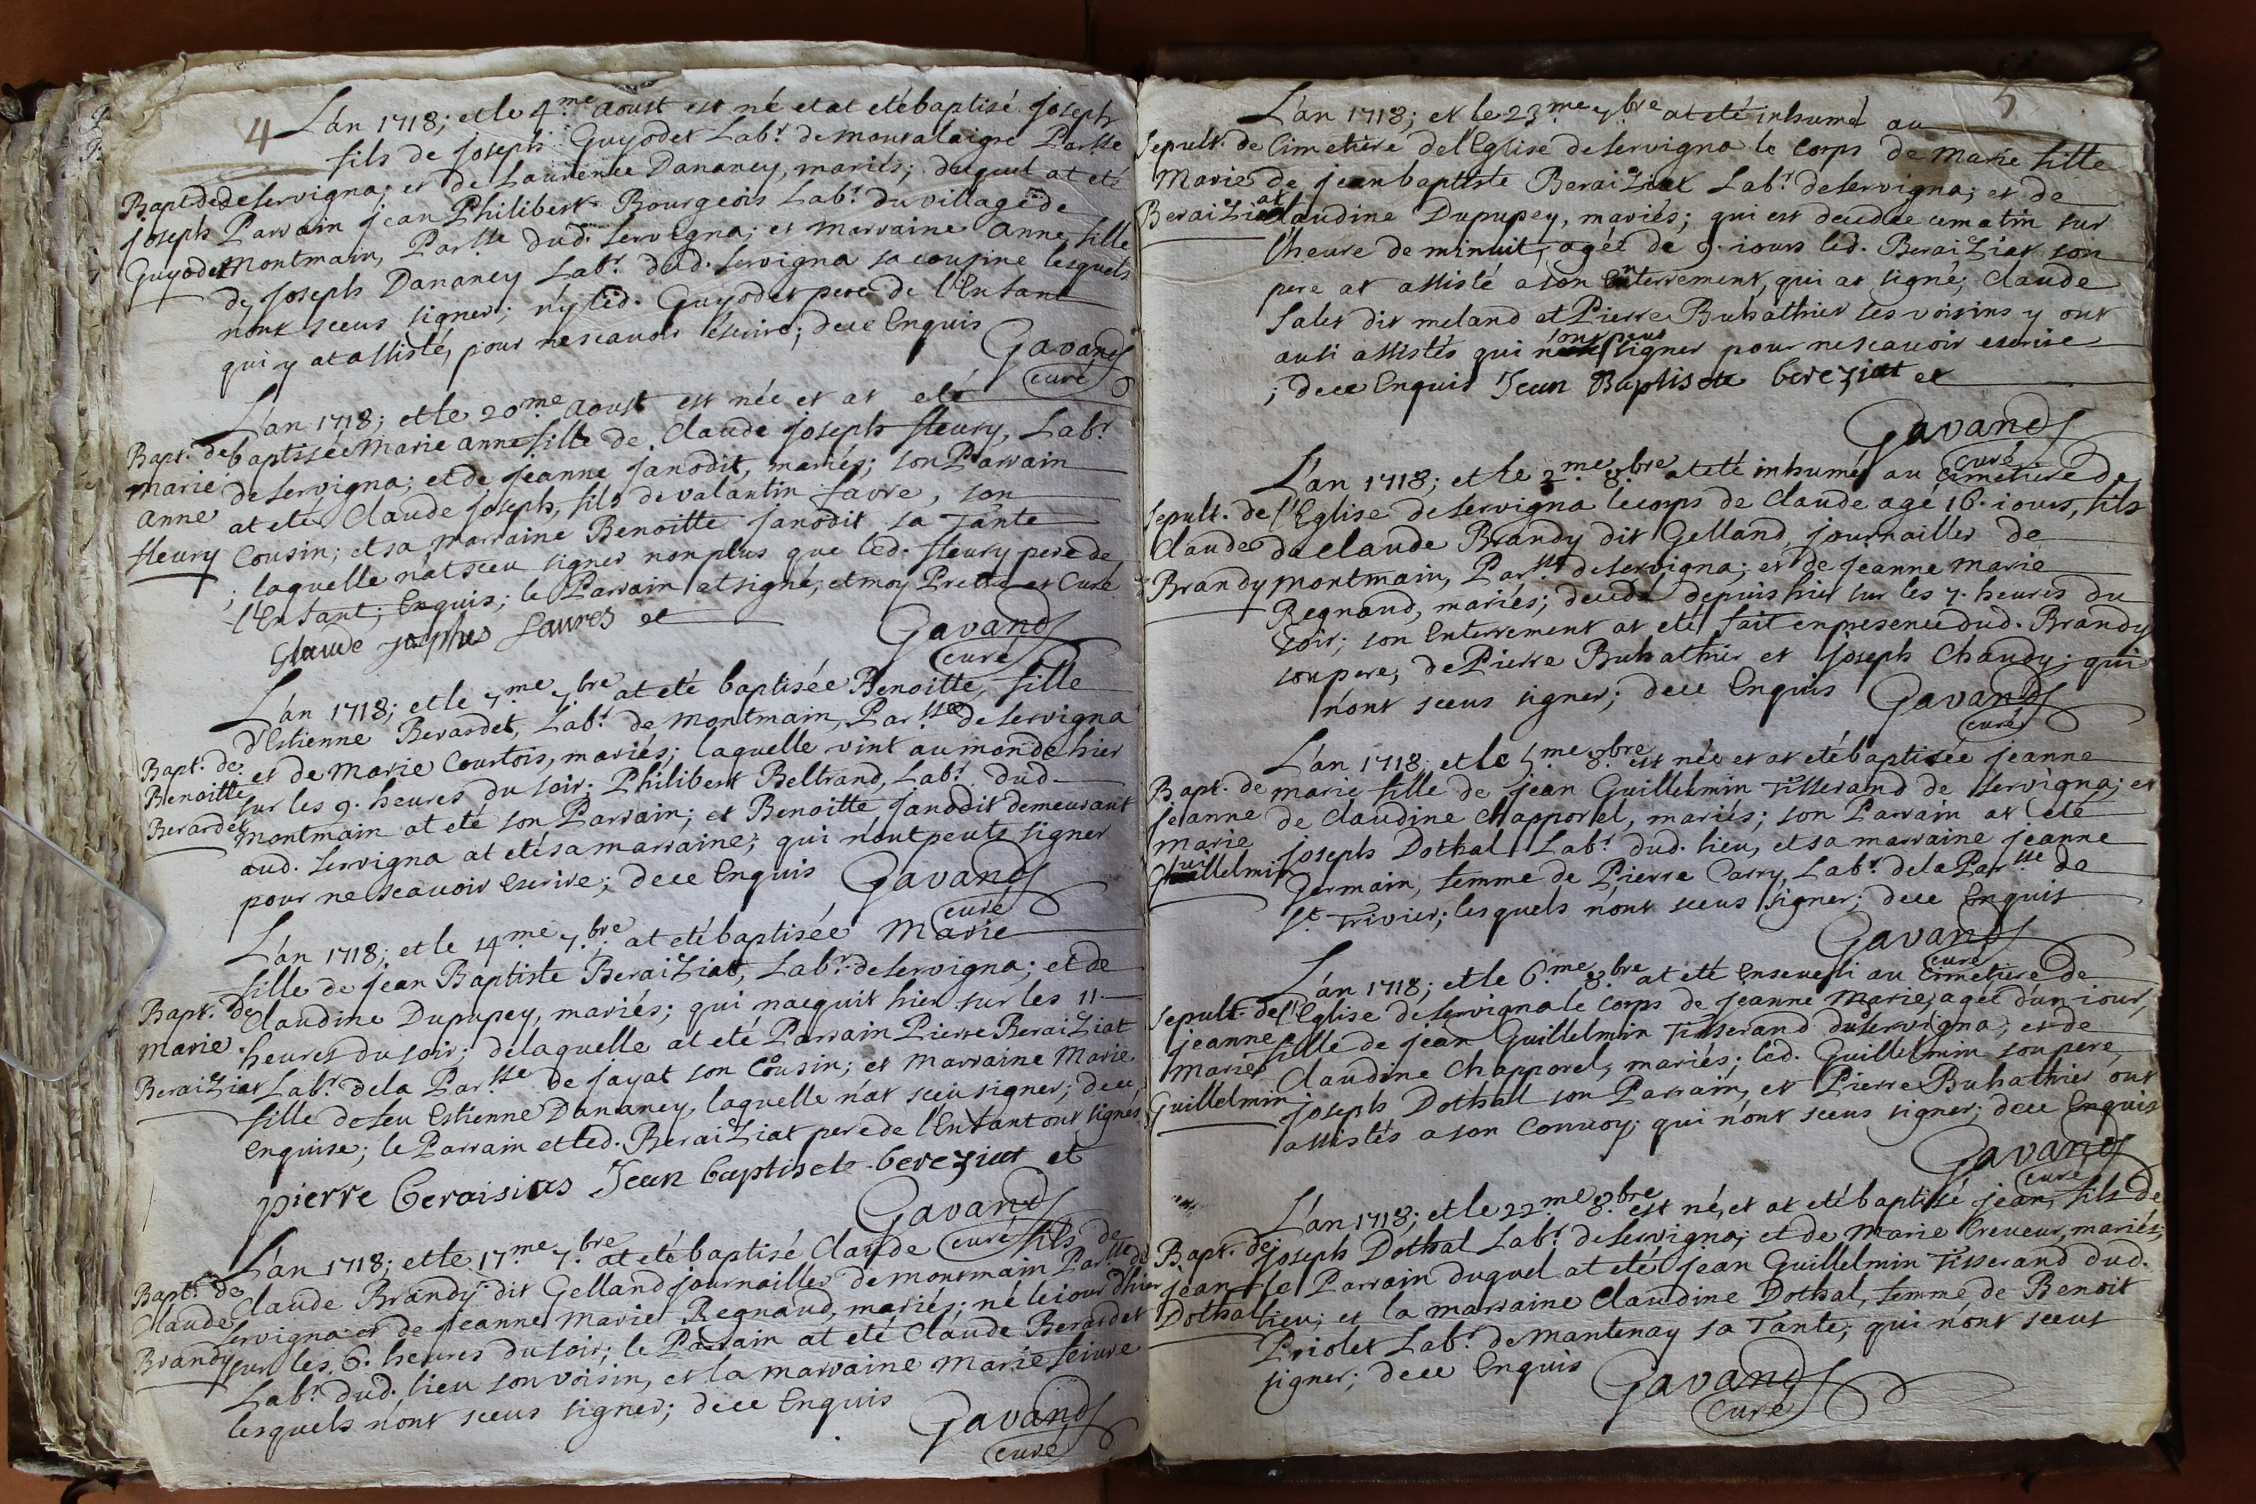 4
L'an 1718; et le 4.me aoust est né et at eté baptisé joseph
fils de joseph Guyodet Lab.r de montalaigre Par.sse
Bapt. de de servigna; et de Laurence Dananey, mariés; duquel at eté
joseph Parrain jean Philibert Bourgeois Lab.r du village de
Guyodet Montmain, Par.sse dud. servigna; et marraine anne fille
de joseph Dananey Lab.r dud. servigna sa cousine lesquels
nont sceus signer; ny led. Guyodet pere de l'Enfant
qui y at assisté, pour ne scavoir éscrire; dece Enquis
Gavand
curé
L'an 1718; et le 20.me aoust est née et at eté
Bapt. de baptisée Marie anne fille de Claude joseph fleury, Lab.r
marie de servigna; et de jeanne janodit, mariés; son Parrain
anne at eté Claude joseph, fils de valantin favre, son
fleury Cousin; et sa marraine Benoitte janodit sa Tante
; laquelle n'at sceu signer non plus que led. fleury pere de
l'Enfant; Enquis; le Parrain at signé, et moy Pretre et Curé
Glaude josphes faures et
Gavand
curé
L'an 1718; et le 7.me 7.bre at eté baptisée Benoitte, fille
d'Estienne Berardet, Lab.r de montmain, Par.sse de servigna
Bapt. de et de Marie Courtois, mariés; laquelle vint au monde hier
Benoitte sur les 9. heures du soir; Philibert Beltrand, Lab.r dud.
Berardet montmain at eté son Parrain; et Benoitte janodit demeurant
aud. servigna at eté sa marraine; qui n'ont peuts signer
pour ne scavoir Escrire; dece Enquis
Gavand
curé
L'an 1718; et le 14.me 7.bre at eté baptisée Marie
fille de jean Baptiste BeraiZiat, Lab.r de servigna; et de
Bapt. de Claudine Dupupey, mariés; qui nacquit hier sur les 11.
marie. heures du soir; de laquelle at eté Parrain Pierre BeraiZiat
BeraiZiat Lab.r de la Par.sse de jayat son Cousin; et marraine Marie
fille de feu Estienne Dananey, laquelle n'at sceu signer; dece
Enquise; le Parrain et led. BeraiZiat pere de l'Enfant ont signés
pierre Ceraisias Jean baptisete bereziat et
Gavand
curé
L'an 1718; et le 17.me 7.bre at eté baptisé Claude fils de
Bapt. de Claude Brandy dit Gelland journaillier de montmain Par.sse de
Claude servigna et de jeanne Marie Regnaud, mariés; né le iour d'hier
Brandy sur les 6. heures du soir; le Parrain at eté Claude Berardet
Lab.r dud. lieu son voisin, et la marraine Marie feivre
lesquels n'ont sceus signer; dece Enquis
Gavand
curé
5
L'an 1718; et le 23.me 7.bre at eté inhumé au
sepult. de Cimetiere de l'Eglise de servigna le Corps de Marie fille
Marie de jean baptiste BeraiZiat Lab.r de servigna; et de
BeraiZiat Claudine Dupupey, mariés; qui est decedée ce matin sur
l'heure de minuit, agée de 9. iours led. BeraiZiat son
pere at assisté a son Enterrement, qui at signé; Claude
Salet dit meland et Pierre Buhathier ses voisins y ont
ausi assistés qui n'ont peus signer pour ne scavoir escrire
; dece Enquis Jean Baptisete bereziat et
Gavand
curé
L'an 1718; et le 2.me 8.bre at eté inhumé au Cimetiere de
sepult. de l'Eglise de servigna le corps de Claude agé 16. iours, fils
Claude de Claude Brandy dit Gelland, journaillier de
Brandy montmain, Par.sse de servigna; et de jeanne Marie
Regnaud, mariés; decedé depuis hier sur les 7. heures du
soir; son Enterrement at eté fait en presence dud. Brandy
son pere, de Pierre Buhathier et joseph Chaudy; qui
n'ont sceus signer; dece Enquis
Gavand
curé
L'an 1718; et le 5.me 8.bre est née et at eté baptisée jeanne
Bapt. de marie fille de jean Guillelmin Tisserand de servigna; et
jeanne de Claudine Chapporel, mariés; son Parrain at eté
marie joseph Dothal Lab.r dud. lieu, et sa marraine jeanne
Guillelmin Germain, femme de Pierre Carry, Lab.r de la Par.sse de
S.t Trivier; lesquels n'ont sceus signer; dece Enquis
Gavand
curé
L'an 1718; et le 6.me 8.bre at eté Enseveli au Cimetiere de
sepult. de l'Eglise de servigna le Corps de jeanne Marie, agée d'un iour,
jeanne fille de jean Guillelmin Tisserand dud. servigna; et de
Marie Claudine Chapporel, mariés; led. Guillelmin son pere,
Guillelmin joseph Dothal son Parrain, et Pierre Buhathier ont
assistés a son Convoy; qui n'ont sceus signer; dece Enquis
Gavand
curé
L'an 1718; et le 22.me 8.bre est né, et at eté baptisé jean, fils de
Bapt. de joseph Dothal Lab.r de servigna; et de Marie Creveur, mariés;
jean le Parrain duquel at eté jean Guillelmin Tisserand dud.
Dothal lieu; et la marraine Claudine Dothal, femme de Benoit
Priolet Lab.r de Mantenay sa Tante; qui n'ont sceus
signer; dece Enquis
Gavand
Curé